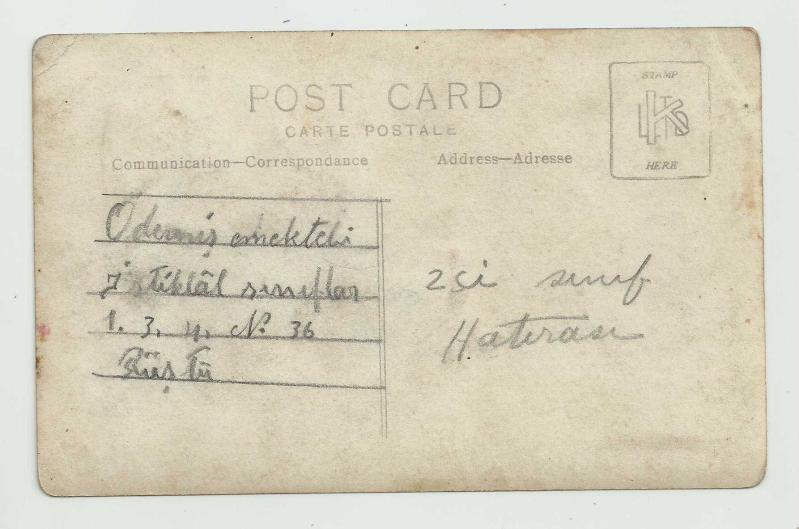 POST CARD
CARTE POSTALE
Communication—Correspondance
Address—Adresse
STAMP
HERE
Ödemiş emektebi
İstiklâl sınıflar
1. 3. 4. No. 36
Rüştü
2çi sınıf
Hatırası